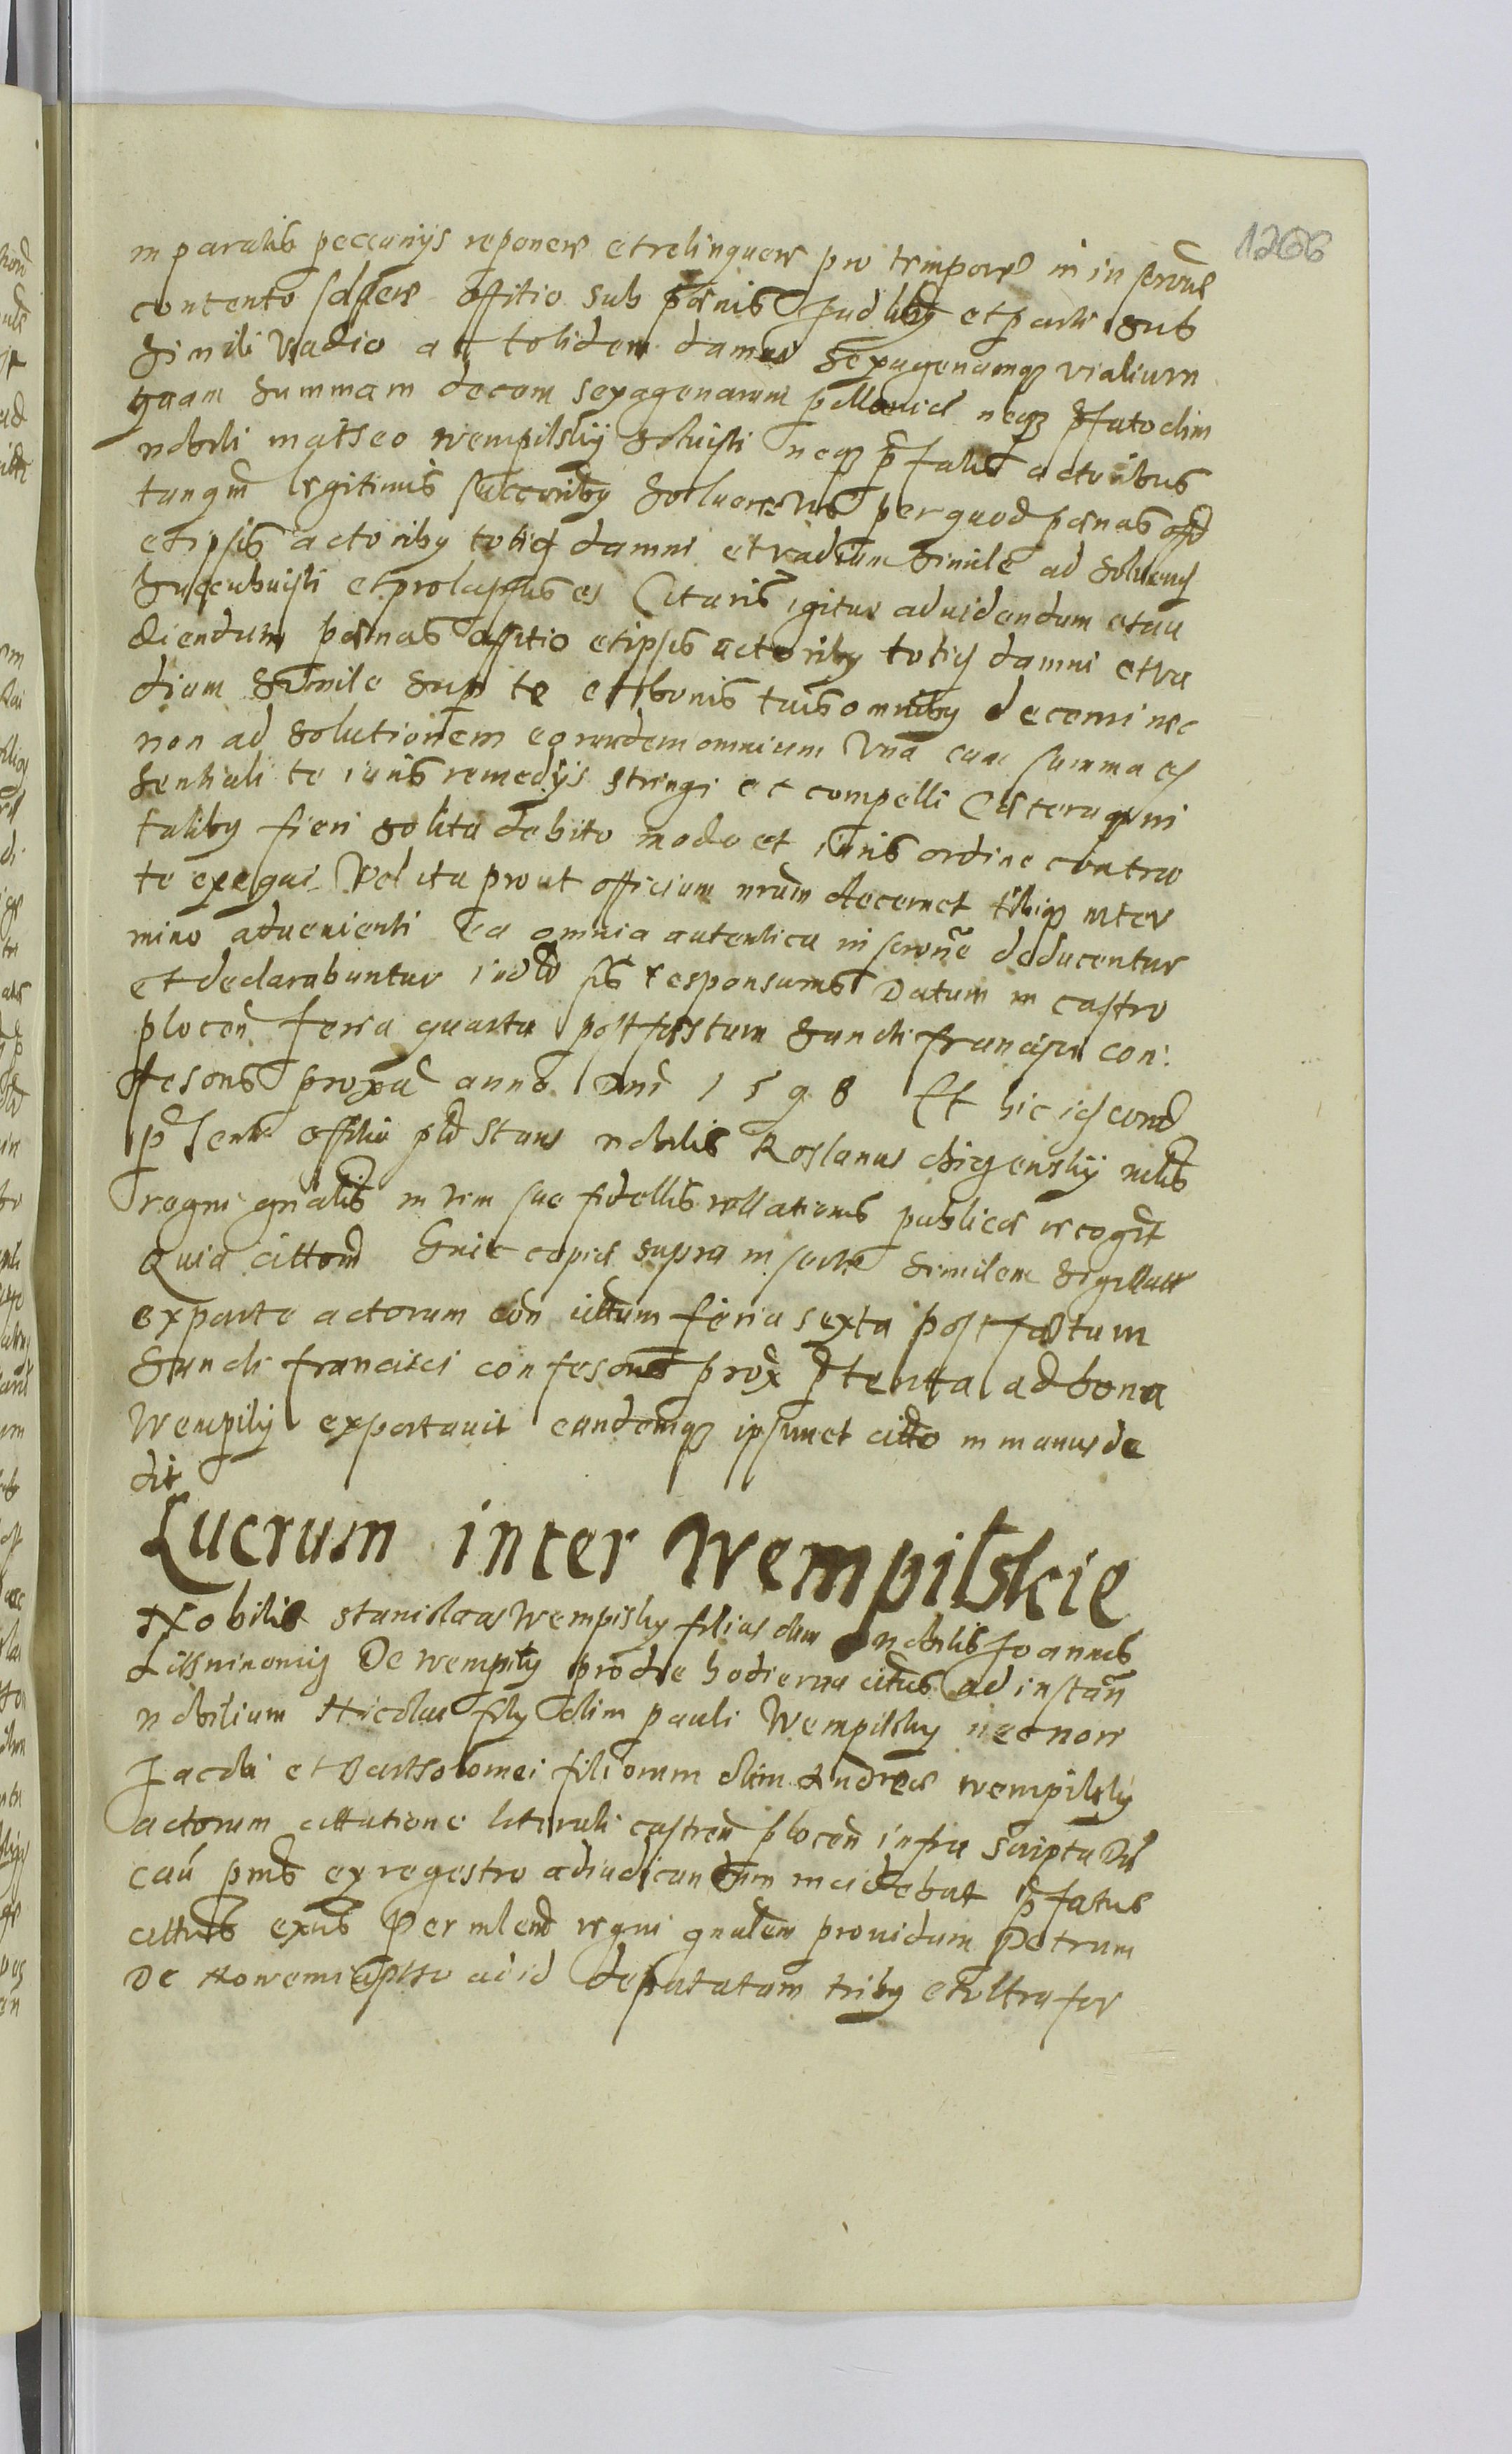 1266
in paratis peccunijs reponere et relinquere pro tempore in inscrone
contento solvere offitio sub pœnis Judlibus et parti sub
simili vadio ac totidem damni sexagenamq vialium
quam summam decem sexagenarum pollonica neq pfato olim
nobili matheo wempilskij soluisti neq pfatis actoribus
tanqm legitimis succoribus soluere vis per quod pœnas offo
et ipsis actoribus totiq damni et vadium simile ad soluend
succubuisti et prolapsus es Citaris igitur ad uidendum et au
diendum pœnas offitio et ipsis actoribus totiq damni et va
dium simile sup te et bonis tuis omnibus decerni nec
non ad solutionem eorundem omnium vna cum summa es
sentiali te iuris remedijs stringi et compelli Cæteraq in
talibus fieri solita debito modo et iuris ordine contra
te exequi Vel ita prout officium nrum decernet tibiq inter
mino aduenienti Ea omnia autentica inscrone deducentur
et declarabuntur iudlr sis responsurus Datum in castro
plocen feria quarta post festum Sancti francisci con
fesoris proxa anno Dni 1598 Et hic id cord
psenti offitio pld stans nobilis Roslanus chigenskij mlis
regni gnalis in vim sue fidellis rellationis publice recogt
Quia cittom huic copie supra inserte similem sigillatt
ex parte actorum con cittum feria sexta post festum
Sancti francisci confesoris prox pterita ad bona
Wempily exportauit eandemq ipsimet citto in manus de
dit
Lucrum inter Wempilskie
Nobilis stanislaus Wempisky filius olim nobilis Joannis
De wempily pro die hodierna citus ad instan
nobilium Nicolai fily olim pauli Wempilsky necnon
Jacobi et Bartholomei filiorum olim Andreæ wempilsky
actorum cittatione literali castren plocen infra scripta
cau pns ex regestro adiudicandum incidebat pfatus
cittus exus Per mlem regni gnalem prouidum Petrum
De ad id deputatum tribus et vltra for